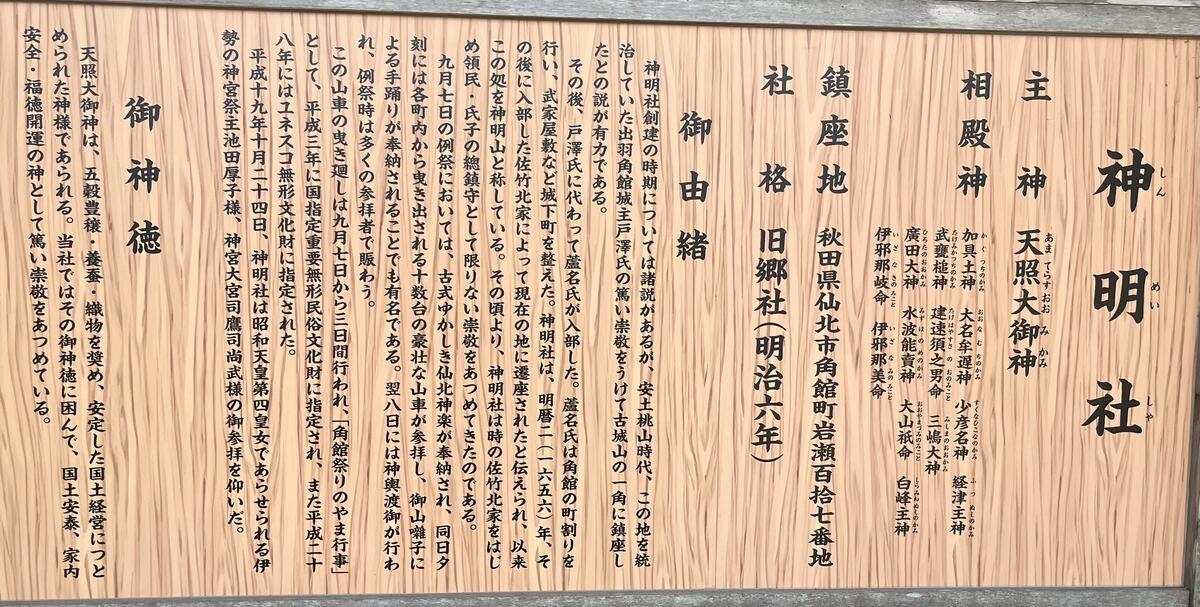 神明社
しんめいしゃ
主神 天照大御神
あまてらすおおみかみ
相殿神
加具土神 大名牟遅神 少彦名神 経津主神
かぐつちのかみ おおなむちのかみ すくなひこなのかみ ふつぬしのかみ
武甕槌神 建速須之男命 三嶋大神
たけみかつちのかみ たけはやすさのおのみこと みしまのおおかみ
廣田大神 水波能賣神 大山祇命 白峰主神
ひろたのおおかみ みずはのめのかみ おおやまづみのみこと しらみねぬしのかみ
伊邪那岐命 伊邪那美命
いざなきのみこと いざなみのみこと
鎮座地 秋田県仙北市角館町岩瀬百拾七番地
社格 旧郷社(明治六年)
御由緒
神明社創建の時期については諸説があるが、安土桃山時代、この地を統
治していた出羽角館城主戸澤氏の篤い崇敬をうけて古城山の一角に鎮座し
たとの説が有力である。
その後、戸澤氏に代わって蘆名氏が入部した。蘆名氏は角館の町割りを
行い、武家屋敷など城下町を整えた。神明社は、明暦二(一六五六)年、そ
の後に入部した佐竹北家によって現在の地に遷座されたと伝えられ、以来
この処を神明山と称している。その頃より、神明社は時の佐竹北家をはじ
め領民・氏子の總鎮守として限りない崇敬をあつめてきたのである。
九月七日の例祭においては、古式ゆかしき仙北神楽が奉納され、同日夕
刻には各町内から曳き出される十数台の豪壮な山車が参拝し、御山囃子に
よる手踊りが奉納されることでも有名である。翌八日には神輿渡御が行わ
れ、例祭時は多くの参拝者で賑わう。
この山車の曳き廻しは九月七日から三日間行われ、「角館祭りのやま行事」
として、平成三年に国指定重要無形民俗文化財に指定され、また平成二十
八年にはユネスコ無形文化財に指定された。
平成十九年十月二十四日、神明社は昭和天皇第四皇女であらせられる伊
勢の神宮祭主池田厚子様、神宮大宮司鷹司尚武様の御参拝を仰いだ。
御神徳
天照大御神は、五穀豊穣・養蚕・織物を奨め、安定した国土経営につと
められた神様であられる。当社ではその御神徳に因んで、国土安泰、家内
安全・福徳開運の神として篤い崇敬をあつめている。